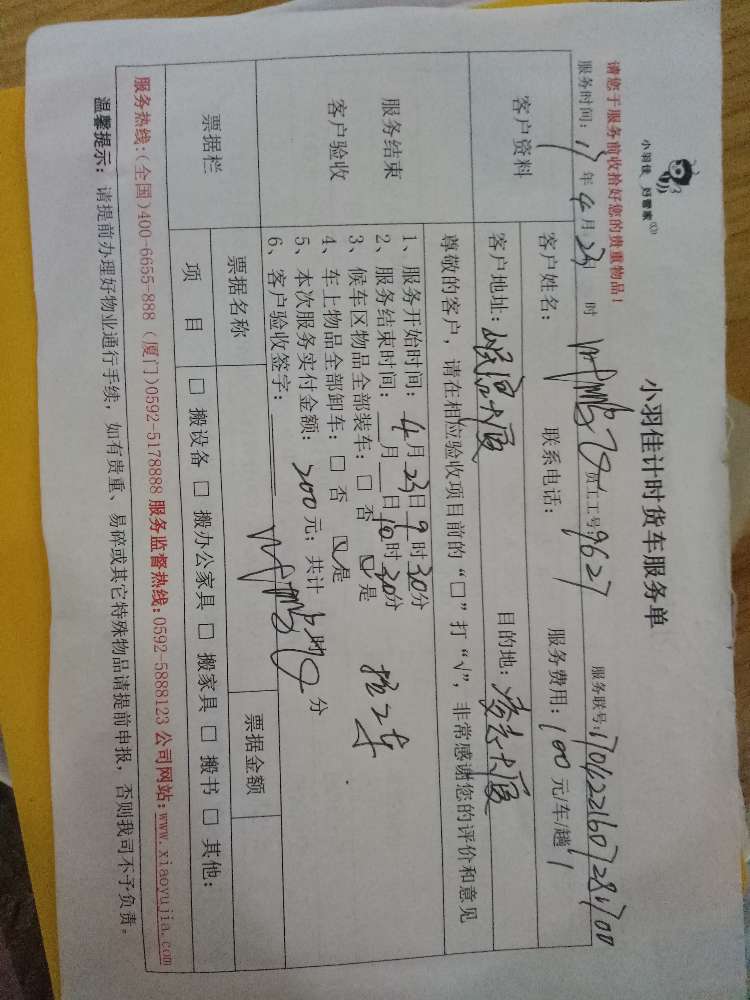 小羽佳 好管家
小羽佳计时货车服务单
请您于服务前收拾好您的贵重物品!
服务时间: 17年4月23日 时 员工工号9627 服务联号:
客户资料
客户姓名: 联系电话: 服务费用: 100元/车/趟
客户地址: 大厦 目的地: 大厦
服务结束
客户验收
尊敬的客户,请在相应验收项目前的“□”打“√”,非常感谢您的评价和意见
1、服务开始时间: 4月23日9时30分
2、服务结束时间: 月 日10时30分
3、候车区物品全部装车: □否 ☑是
4、车上物品全部卸车: □否 ☑是
5、本次服务实付金额: 200元; 共计 时 分
6、客户验收签字:
票据栏
票据名称 票据金额
项目 □搬设备 □搬办公家具 □搬家具 □搬书 □其他:
服务热线:(全国)400-6655-888 (厦门)0592-5178888 服务监督热线:0592-5888123 公司网站:www.xiaoyujia.com
温馨提示: 请提前办理好物业通行手续,如有贵重、易碎或其它特殊物品请提前申报,否则我司不予负责。